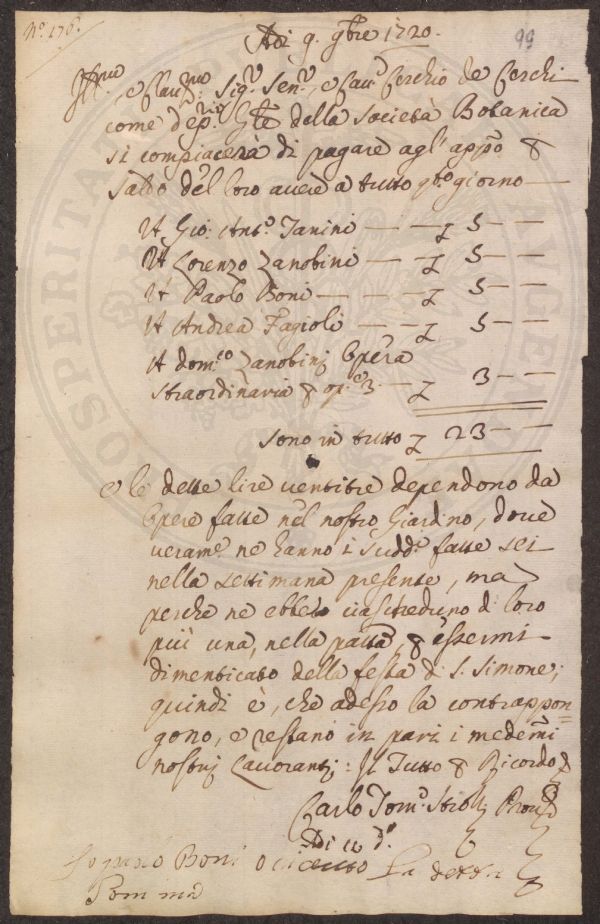 N.º 176.
99
Adi 9. 9bre 1720.
Ill.mo, e Clar.mo Sig.r Sen.r, e Cav.r Cerchio de Cerchi
come dep.rio g.le della Società Botanica
si compiacerà di pagare agl'app.o &
saldo del loro avere a tutto q.to giorno —
A Gio: Ant.o Janini — — £ 5 — —
A Lorenzo Zanobini — — £ 5 — —
A Paolo Boni — — — £ 5 — —
A Andrea Fagioli — — £ 5 — —
A dom.co Zanobinj Opera
straordinaria & op.e 3. — £ 3 — —
sono in tutto £ 23 — —
e le dette lire ventitre dependono da
Opere fatte nel nostro Giardino, dove
veram.e ne hanno i sudd.i fatte sei
nella settimana presente, ma
perche ne ebbero ciascheduno d loro
più una, nella passa, & essermi
dimenticato della festa di S. Simone;
quindi è, che adesso la contrappon=
gono, e restano in pari i medemi
nostri Lavoranti: Il Tutto & Ricordo
Carlo Tom.o Stiolj Prov.e
Adi 11 d.o
Io Boni o la detta
Somma